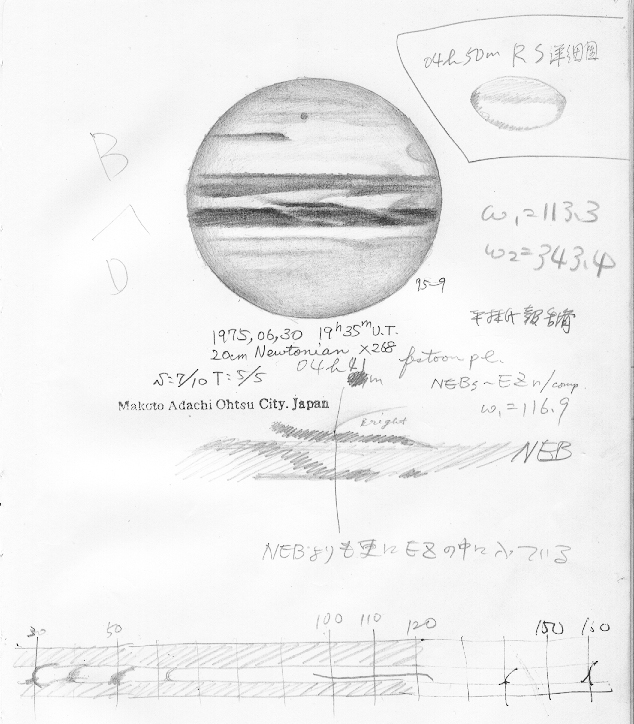 04h50m RS詳細図
B
D
ω₁=113.3
ω₂=343.4
75-9
1975,06,30 19ʰ35ᵐU.T.
20cm Newtonian ×268
S:7/10 T:5/5
Makoto Adachi Ohtsu City. Japan
04h41m
festoon pl.
NEBs~EZn/comp.
ω₁=116.9
Bright
NEB
NEBよりも更にEZの中に入っている
30 50 100 110 120 150 160